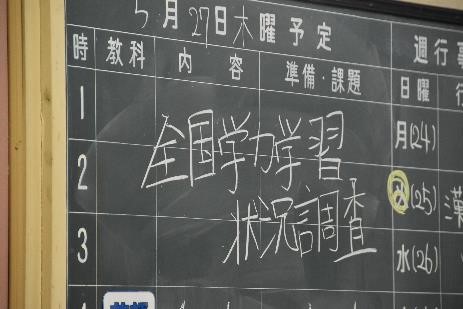 5月27日木曜予定
週行事
時 教科 内容 準備・課題
日曜 行
1
全国学力学習
月(24)
2
火(25) 漢
状況調査
3
水(26)